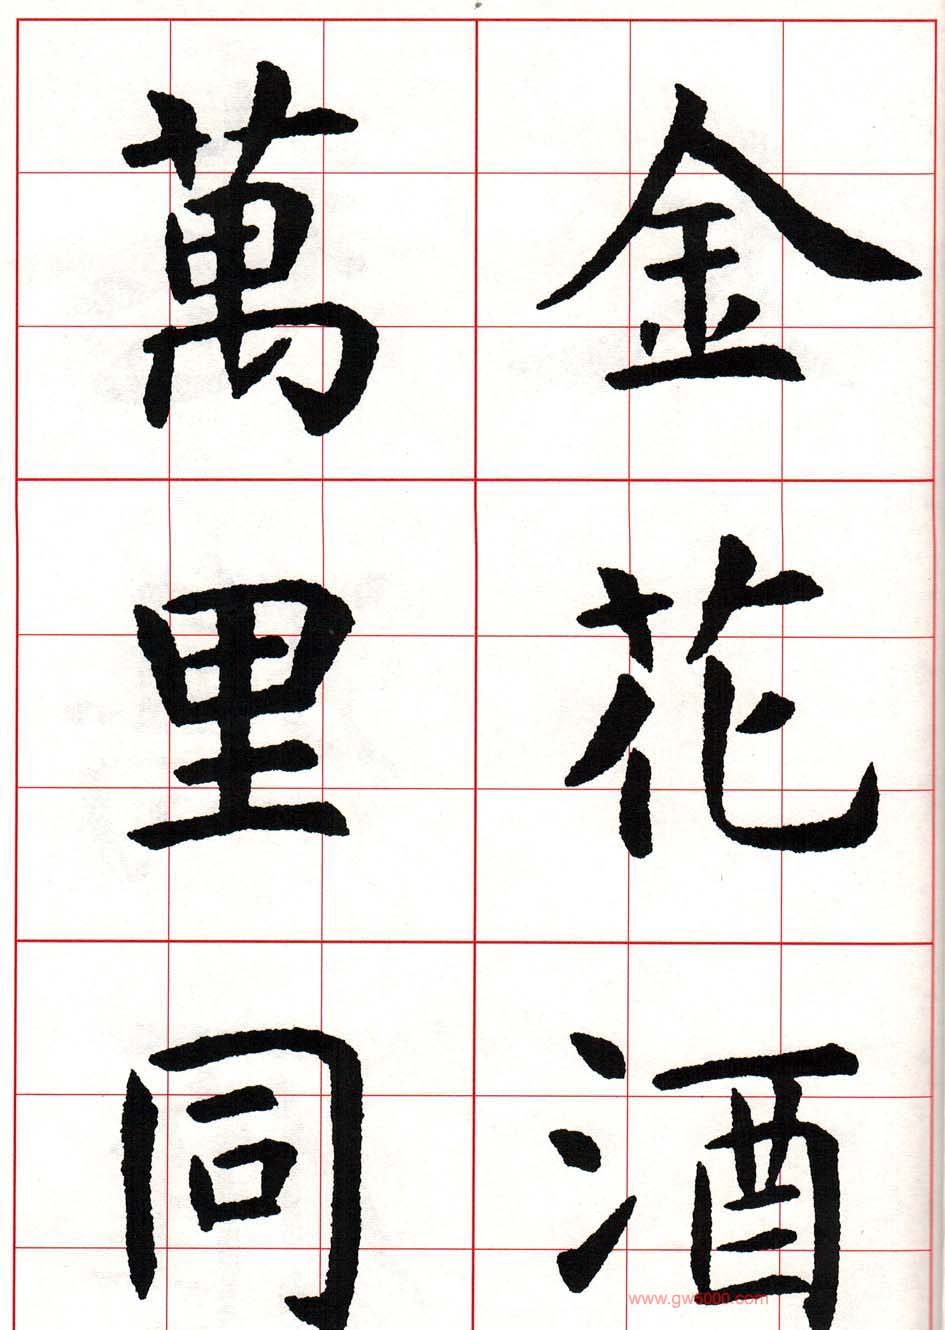 金花酒
萬里同
www.gw5000.com